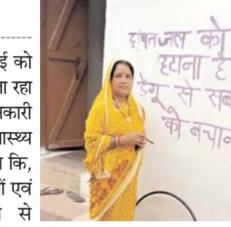 ई को
ता रहा
नकारी
ास्थ्य
ा कि,
ों एवं
से
दूषित जल को
हटाना है
डेंगू से सब
को बचान